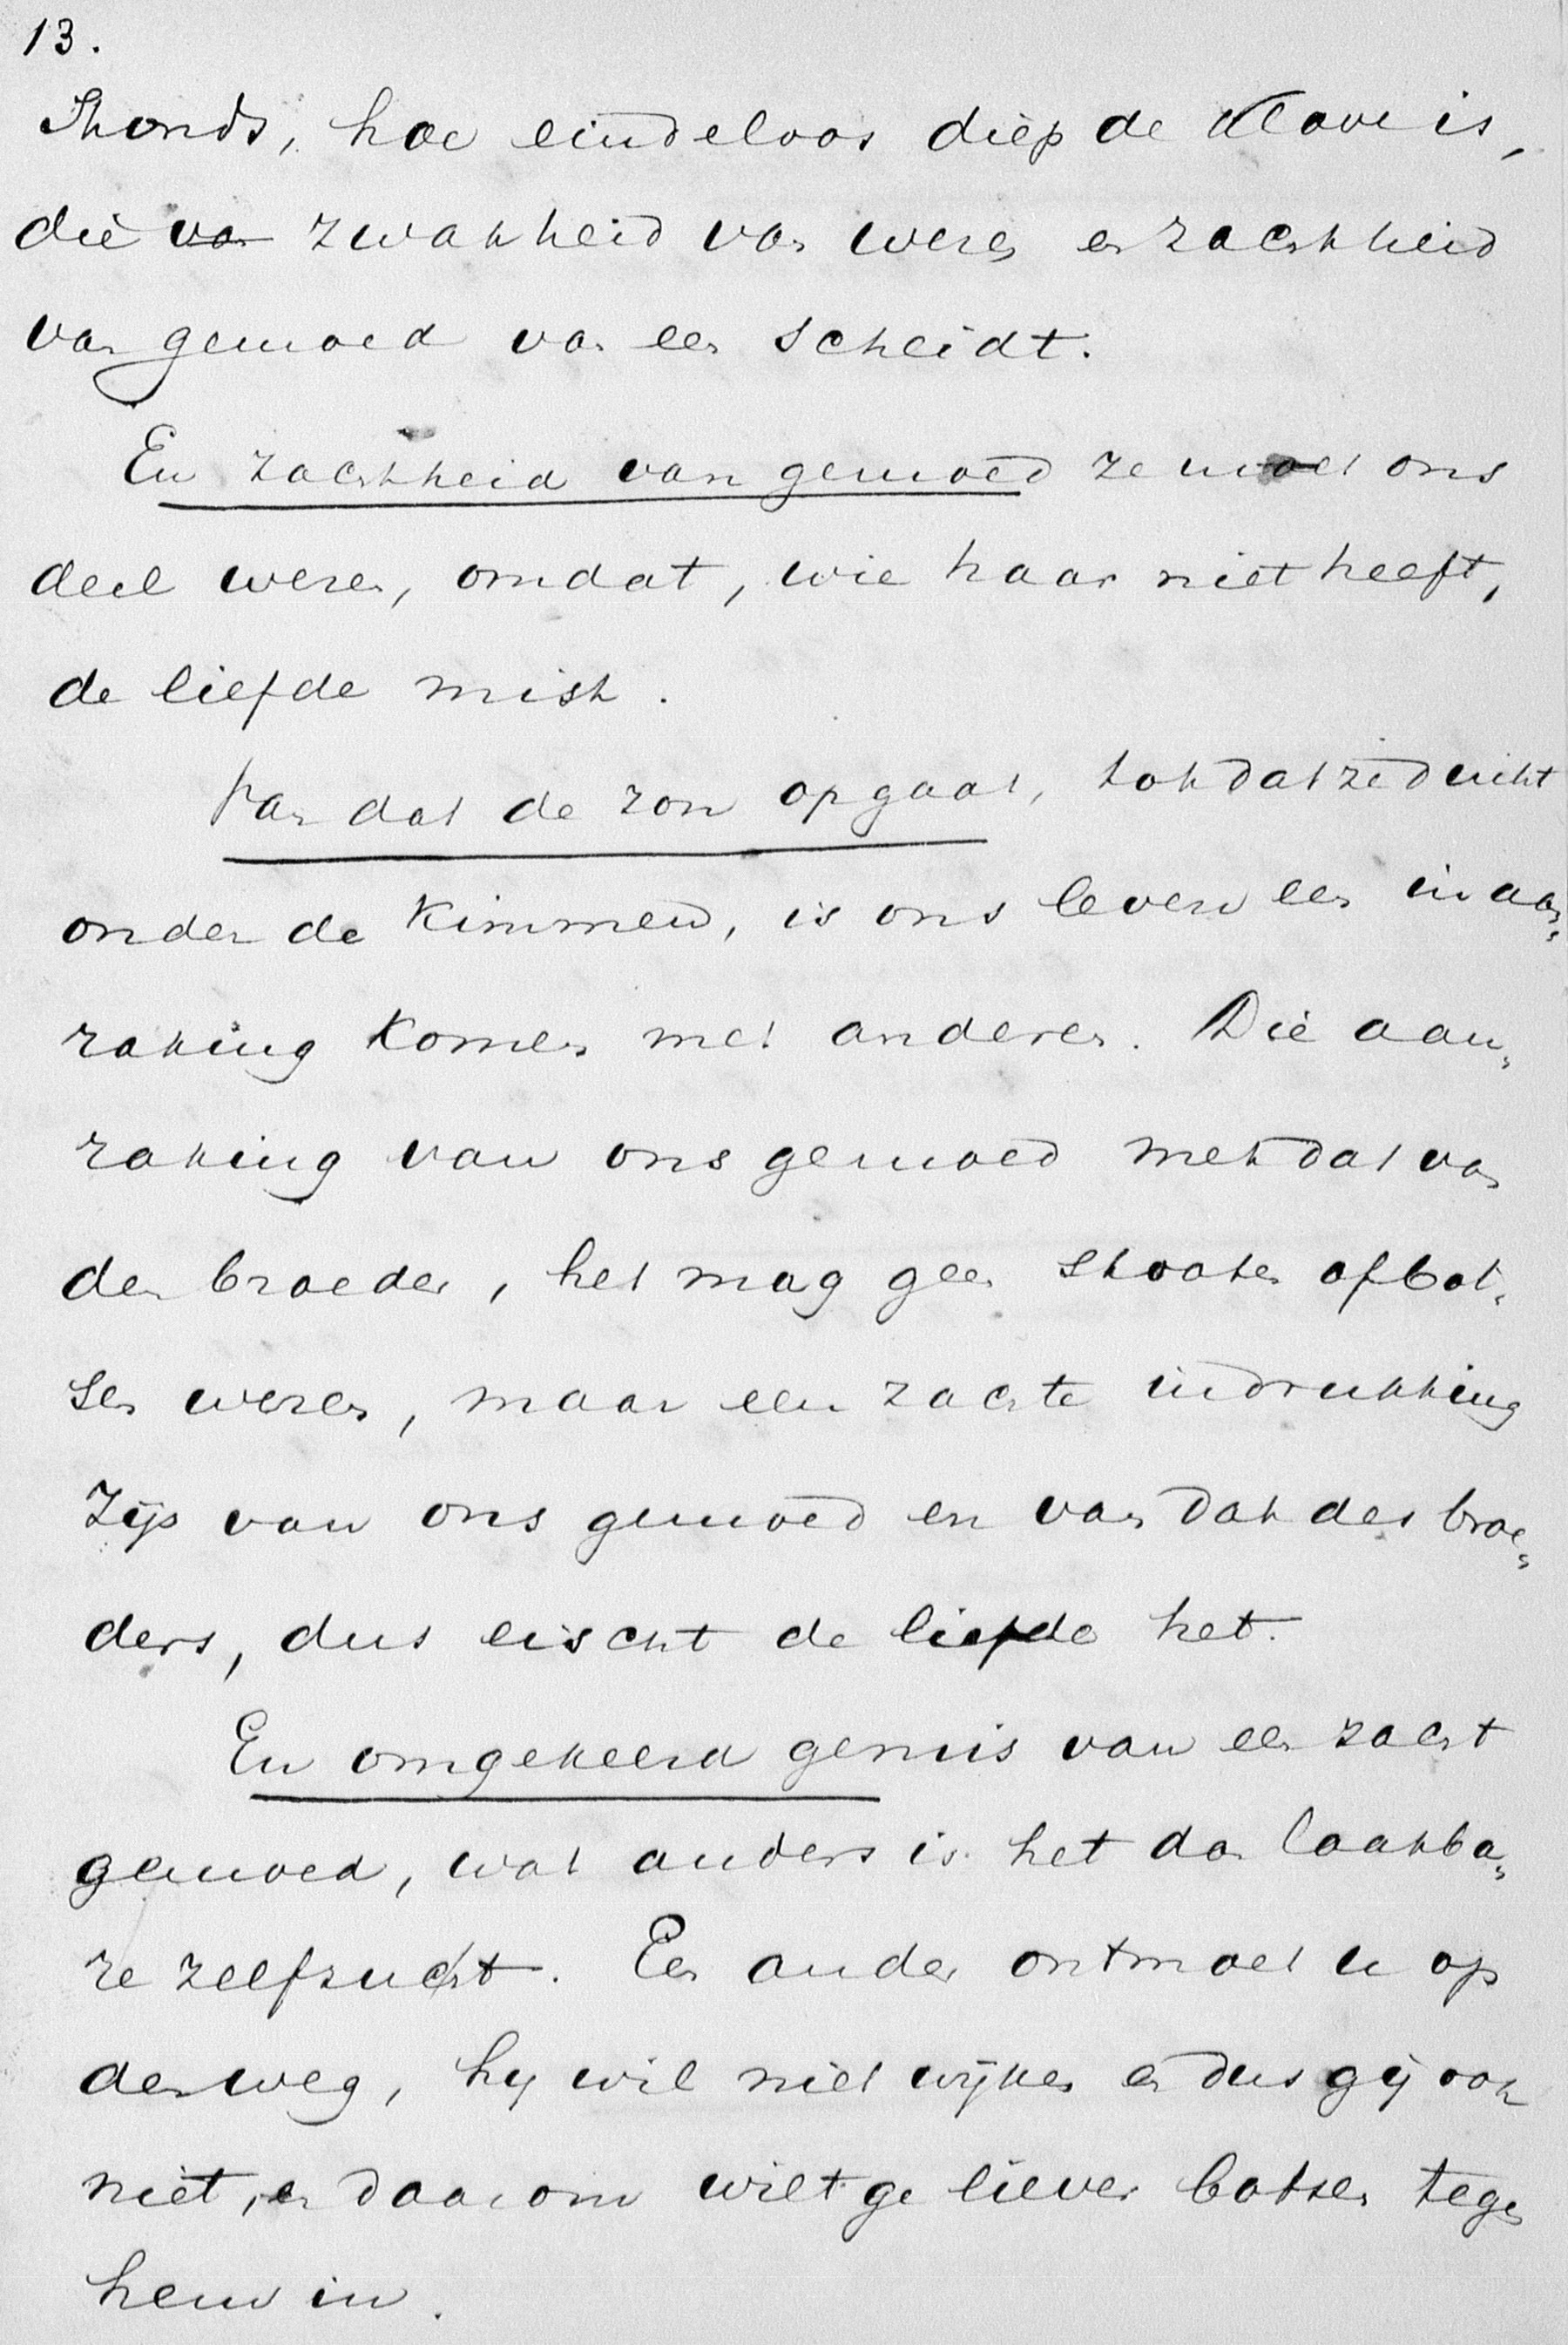 13.
Thonds, hoe eindeloos diep de Klove is,
die van zwakheid van wezen en zachtheid
van gemoed van een scheidt.
En zachtheid van gemoed ze moet ons
deel wezen, omdat, wie haar niet heeft,
de liefde mist.
Van dat de zon opgaat, totdat ze duikt
onder de Kimmen, is ons leven een in aan„
raking Komen met anderen. Die aan„
raking van ons gemoed met dat van
den broeder, het mag geen stooten of bot„
sen wezen, maar een zachte indrukking
zijn van ons gemoed en van dat des broe„
ders, dus eischt de liefde het.
En omgekeerd gemis van een zacht
gemoed, wat anders is het dan laakba„
re zelfzucht. Een ander ontmoet u op
den weg, hij wil niet wijken en dus gij ook
niet, en daarom wilt ge liever botsen tegen
hem in.